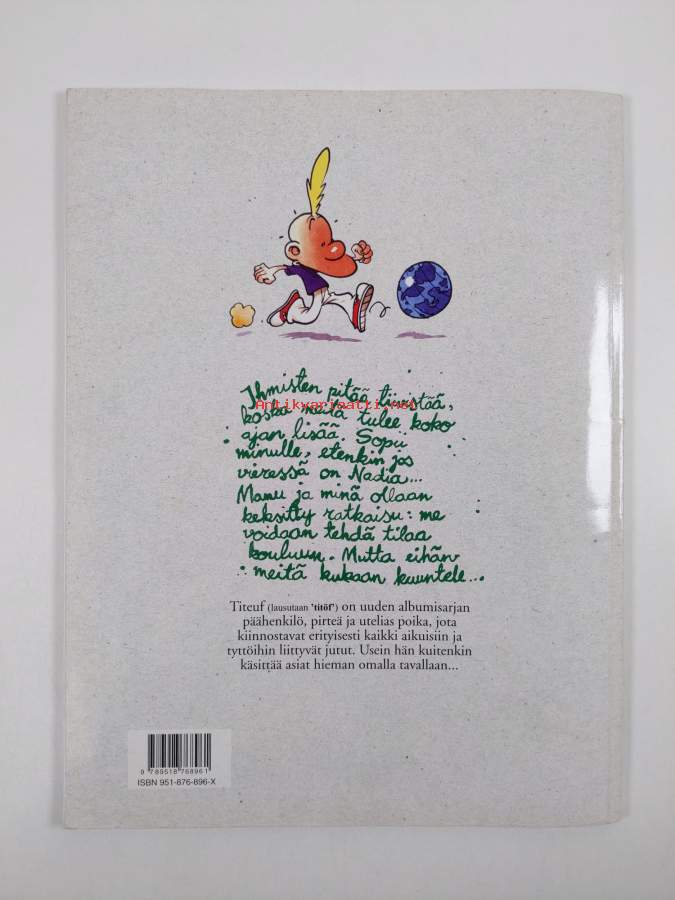 Ihmisten pitää tiivistää,
koska meitä tulee koko
Antikvariaatti.net
ajan lisää. Sopii
minulle, etenkin jos
vieressä on Nadia...
Mamu ja minä ollaan
keksitty ratkaisu: me
voidaan tehdä tilaa
kouluun. Mutta eihän
meitä kukaan kuuntele...
Titeuf (lausutaan 'titöf') on uuden albumisarjan
päähenkilö, pirteä ja utelias poika, jota
kiinnostavat erityisesti kaikki aikuisiin ja
tyttöihin liittyvät jutut. Usein hän kuitenkin
käsittää asiat hieman omalla tavallaan...
9 789518 768961
ISBN 951-876-896-X